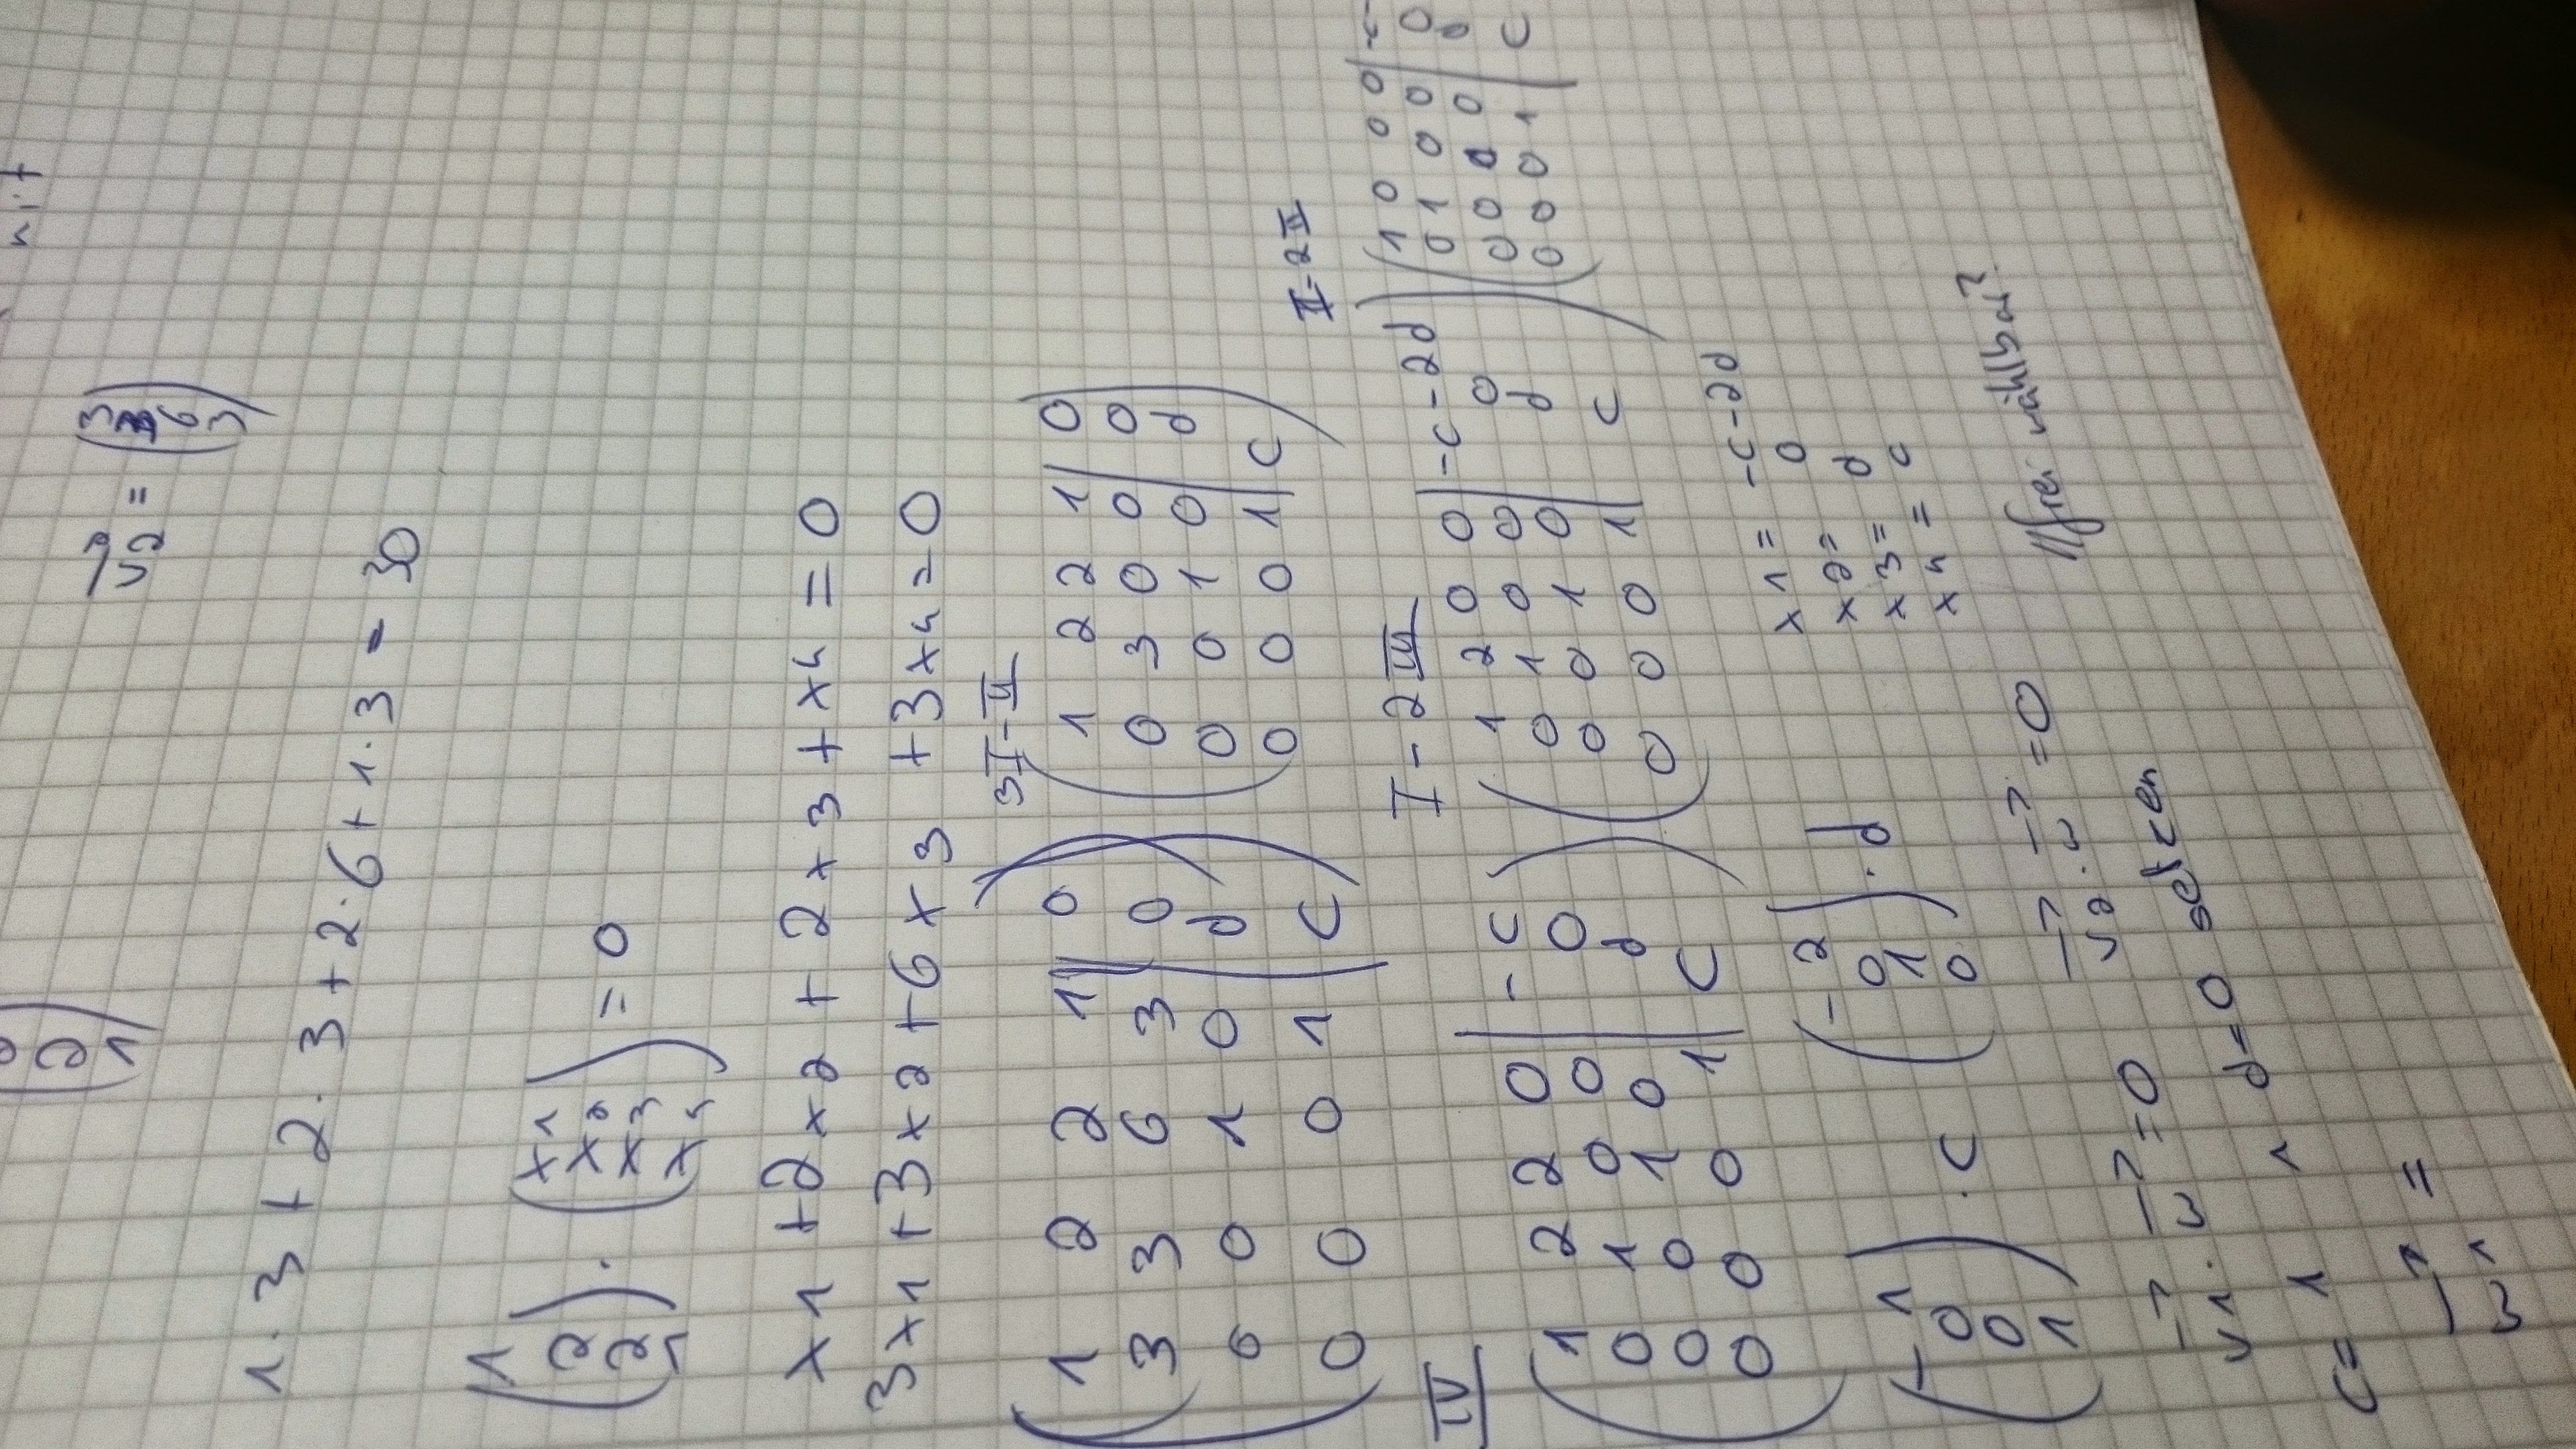 v2 = (3 3 6 3)
2
1
1·3 + 2·3 + 2·6 + 1·3 = 30
(1 2 2 1) · (x1 x2 x3 x4) = 0
x1 + 2x2 + 2x3 + x4 = 0
3x1 + 3x2 + 6x3 + 3x4 = 0
3I - II
1 2 2 1 | 0
3 3 6 3 | 0
0 0 1 0 | d
0 0 0 1 | c
1 2 2 1 | 0
0 3 0 0 | 0
0 0 1 0 | d
0 0 0 1 | c
IV
1 2 2 0 | -c
0 1 0 0 | 0
0 0 1 0 | d
0 0 0 1 | c
I - 2III
1 2 0 0 | -c-2d
0 1 0 0 | 0
0 0 1 0 | d
0 0 0 1 | c
I-2II
1 0 0 0 | -c
0 1 0 0 | 0
0 0 0 | d
0 0 0 1 | c
x1 = -c-2d
x2 = 0
x3 = d
x4 = c
(-1 0 0 1) · c (-2 0 1 0) · d
// frei wählbar?
v1 · w = 0 v2 · w = 0
c = 1 d = 0 setzen
=